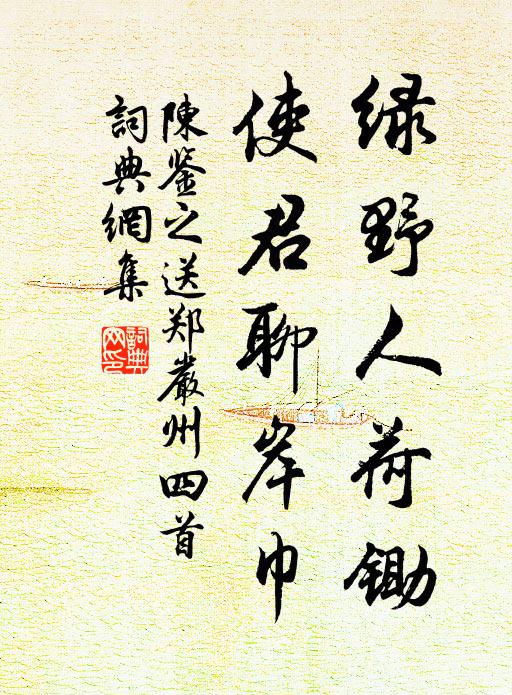 绿野人荷锄
使君聊岸巾
陳鉴之送郑巌州四首
詞典網集
詞典网印